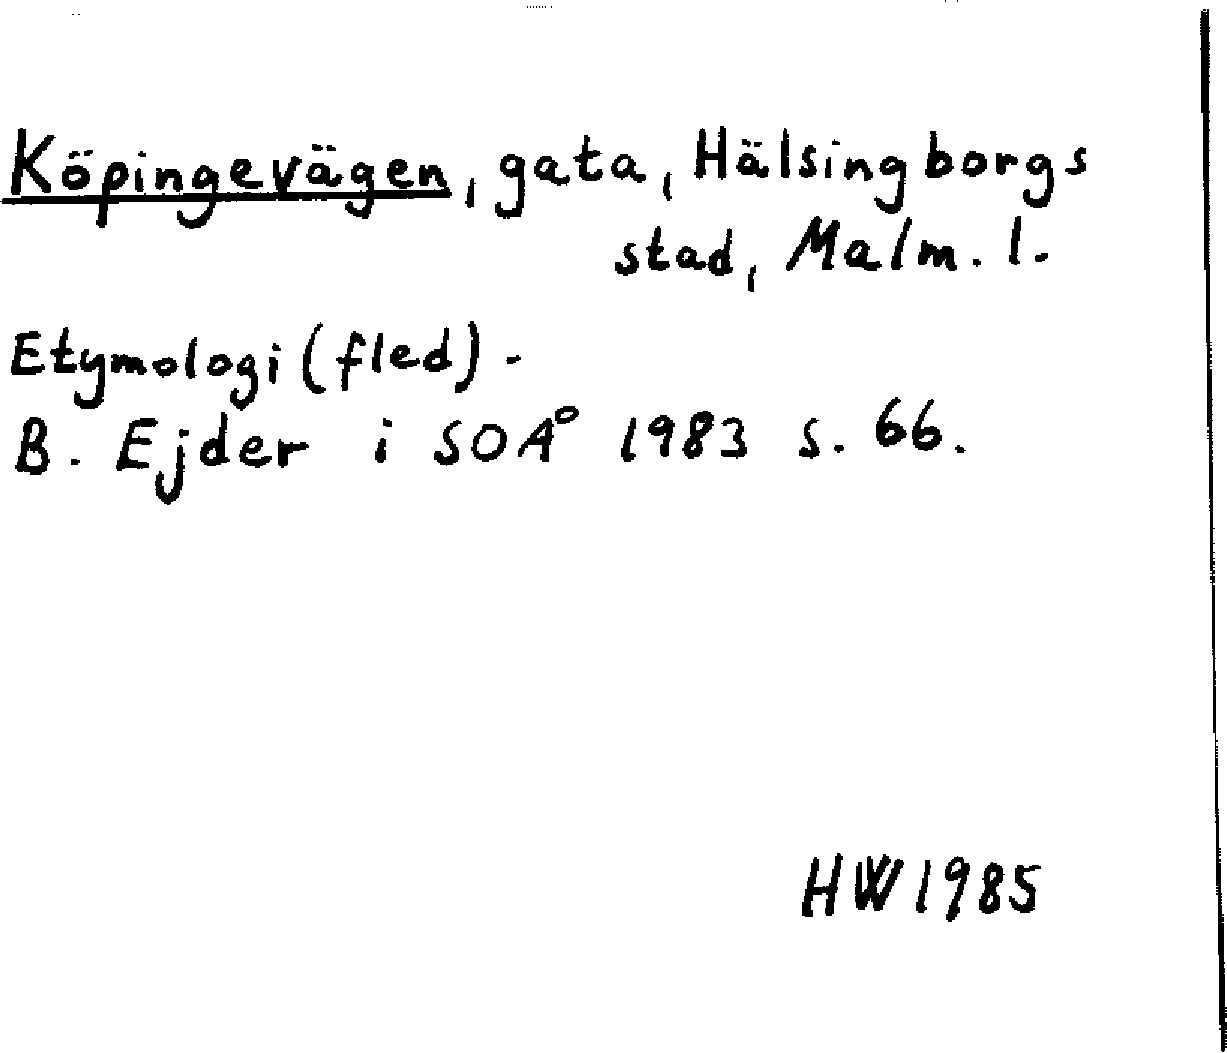 Köpingevägen, gata, Hälsingborgs
stad, Malm. l.
Etymologi (fled).
B. Ejder i SOÅ 1983 s. 66.
HW 1985